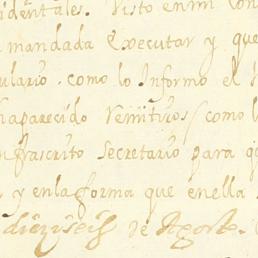 identales. Visto en mi con
mandada executar y que
ulario, como lo Informo el
haparecido remitiros (como l
nfrascrito Secretario para q
y en la forma que en ella
diez y seis de Agosto.